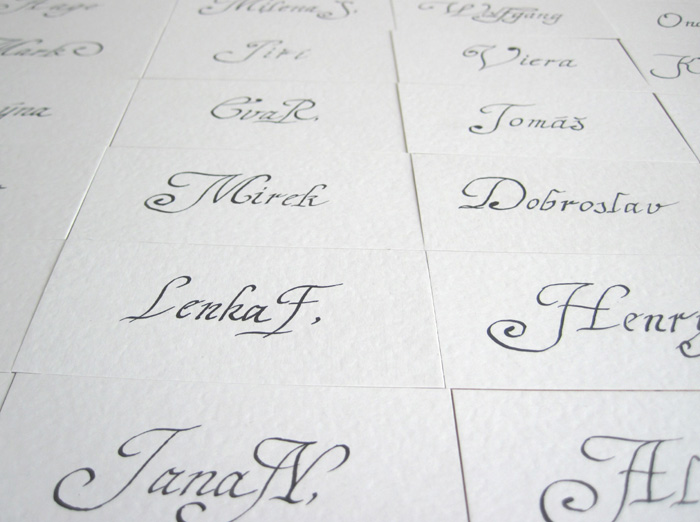 Milena S.
Wolfgang
Jiří
Viera
Eva R.
Tomáš
Mirek
Dobroslav
Lenka F.
Henry
Jana N.